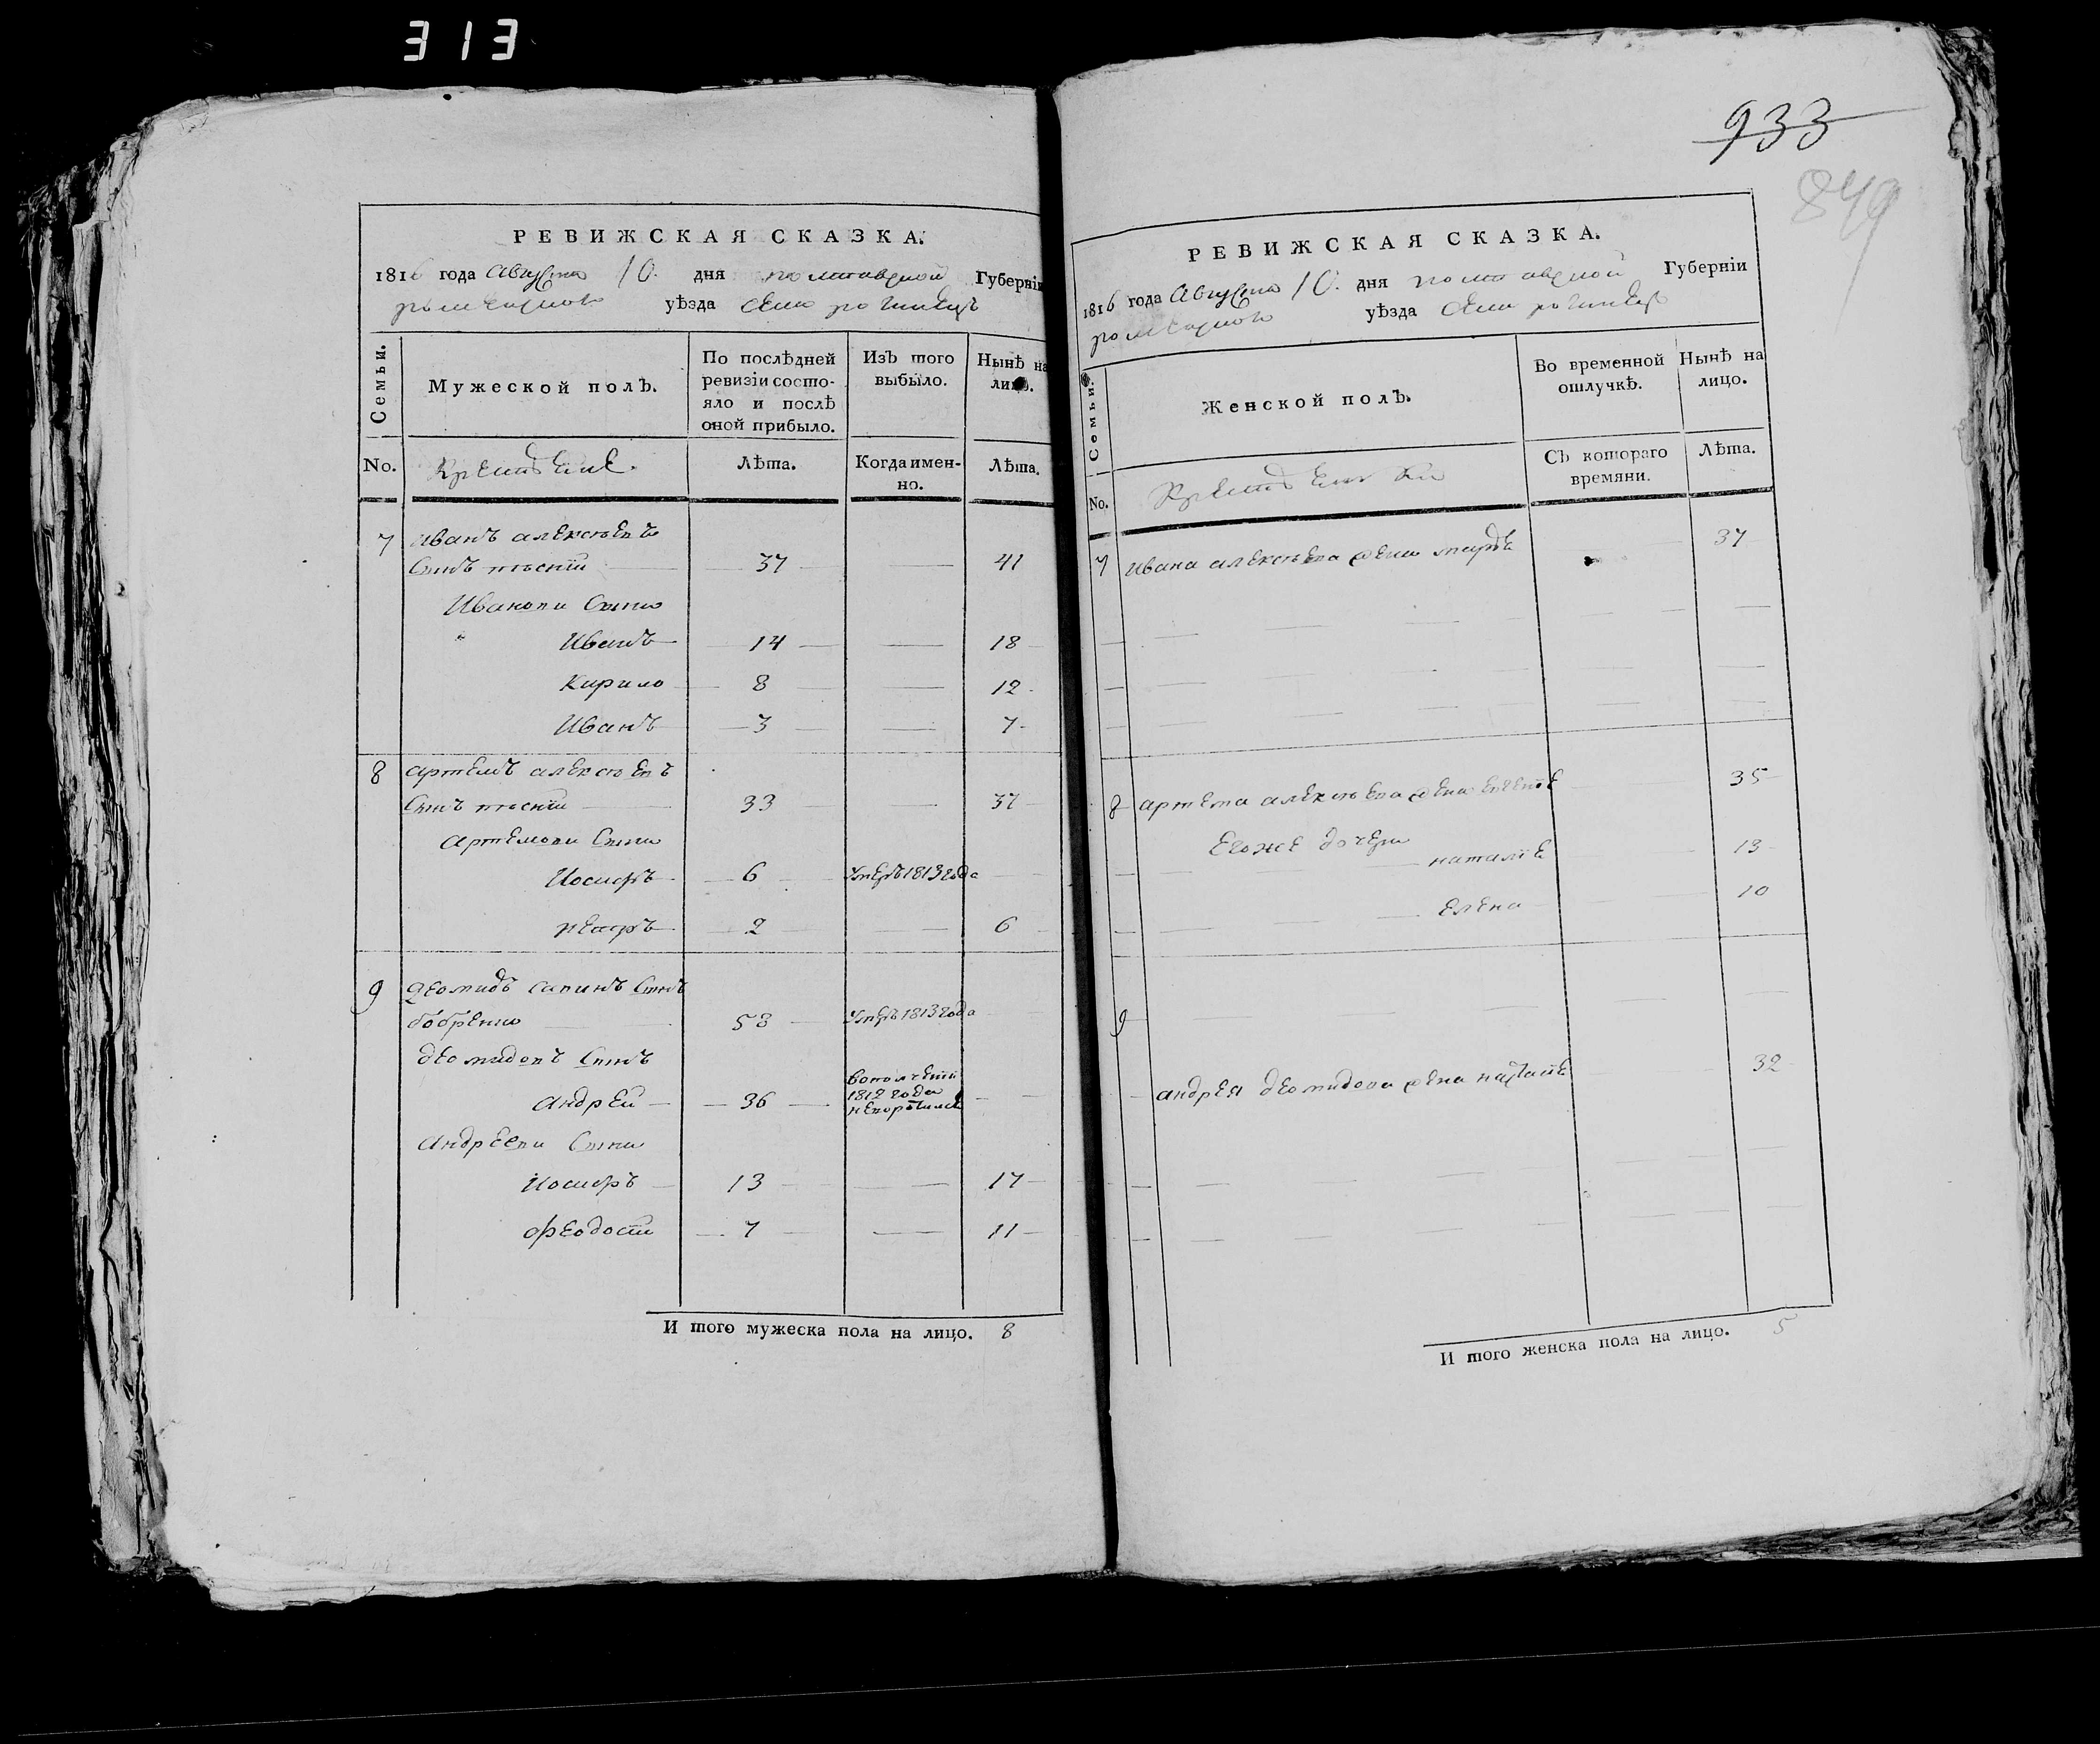 313
РЕВИЖСКАЯ СКАЗКА.
1816 года Августа 10. дня полтавской Губерніи
роменского уѣзда села рогинецъ
Семьи.
Мужеской полъ.
По послѣдней ревизіи состояло и послѣ оной прибыло.
Изъ того выбыло.
Нынѣ на лицо.
No.
Крестьяне.
Лѣта.
Когда именно.
Лѣта.
7 иванъ алексѣевъ
Сынъ 37 41
Ивановы Сыны
Иванъ 14 18
Кирило 8 12
Иванъ 3 7
8 артемъ алексѣевъ
Сынъ 33 37
артемовы Сыны
Иосифъ 6 умеръ 1813 года
петръ 2 6
9 деомидъ савинъ Сынъ
бобренко 58 умеръ 1813 года
деомидовъ Сынъ
андрей 36 вополченіи 1812 года
андреевы Сыны
Иосифъ 13 17
феодосій 7 11
И того мужеска пола на лицо. 8
933
849
РЕВИЖСКАЯ СКАЗКА.
1816 года Августа 10. дня полтавской Губерніи
роменского уѣзда села рогинецъ
Семьи.
Женской полъ.
Во временной отлучкѣ.
Нынѣ на лицо.
No.
Крестьянки
Съ котораго времяни.
Лѣта.
7 ивана алексѣева жена марфа 37
8 артема алексѣева жена 35
Егоже дочери
наталіе 13
елена 10
9
андрея деомидова жена 32
И того женска пола на лицо. 5